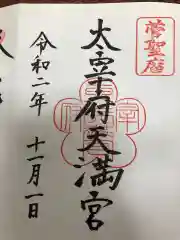 菅聖廟
太宰府天満宮
令和二年 十一月一日